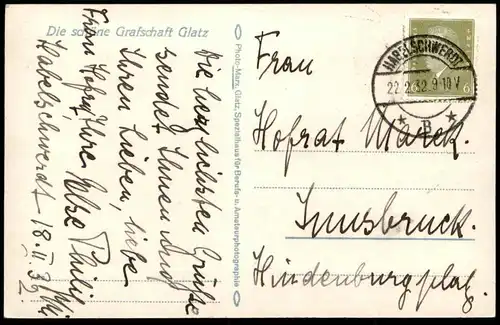 Die schöne Grafschaft Glatz
Die herzlichsten Grüße
sendet Ihnen und
Ihren Lieben, liebe
Frau Hofrat, Ihre
Habelschwerdt 18.II.32
Photo-Marx, Glatz, Spezialhaus für Berufs- u. Amateurphotographie
HABELSCHWERDT
22.2.32.9-10V
* B *
6
Frau
Hofrat Marek.
Innsbruck.
Hindenburgplatz.